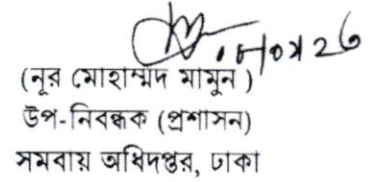 (নূর মোহাম্মদ মামুন )
উপ-নিবন্ধক (প্রশাসন)
সমবায় অধিদপ্তর, ঢাকা